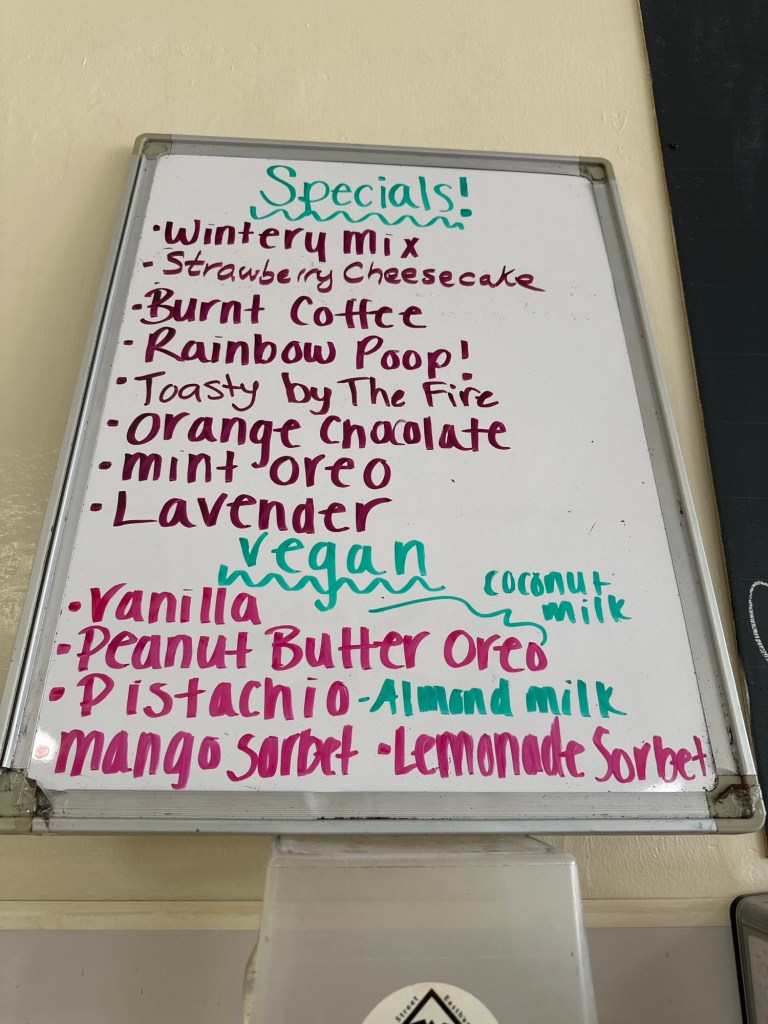 Specials!
• Wintery Mix
- Strawberry Cheesecake
• Burnt Coffee
• Rainbow Poop!
• Toasty by The Fire
• Orange Chacolate
• mint oreo
• Lavender
vegan
coconut
milk
• Vanilla
• Peanut Butter Oreo
• Pistachio - Almond milk
• mango sorbet • Lemonade Sorbet
Street